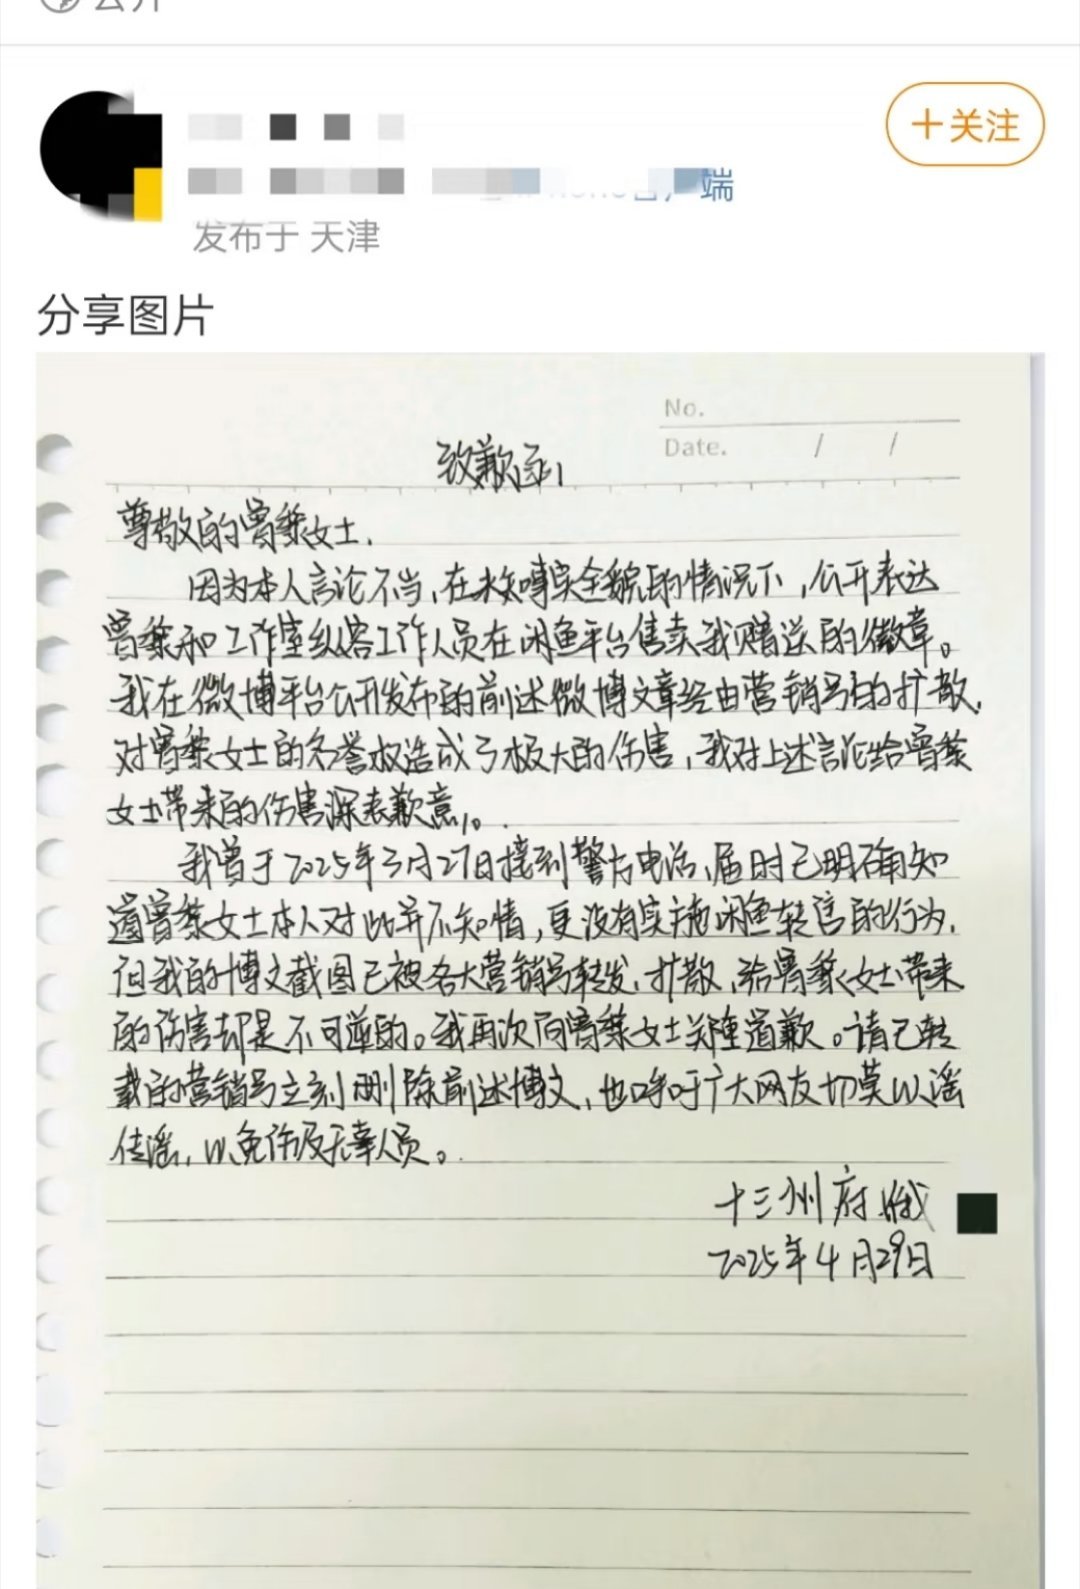 +关注
端
发布于 天津
分享图片
No.
Date. / /
致歉函
尊敬的曾黎女士,
因为本人言论不当,在未知事实全貌的情况下,公开表达
曾黎和工作室纵容工作人员在闲鱼平台售卖我赠送的徽章。
我在微博平台公开发布的前述微博文章经由营销号的扩散,
对曾黎女士的名誉权造成了极大的伤害,我对上述言论给曾黎
女士带来的伤害深表歉意。
我曾于2025年3月27日接到警方电话,届时已明确知
道曾黎女士本人对此并不知情,更没有实施闲鱼转售的行为,
但我的博文截图已被各大营销号转发,扩散,给曾黎女士带来
的伤害却是不可逆的。我再次向曾黎女士郑重道歉。请已转
载的营销号立刻删除前述博文,也呼吁广大网友切莫以谣
传谣,以免伤及无辜人员。
十三州府哦
2025年4月29日